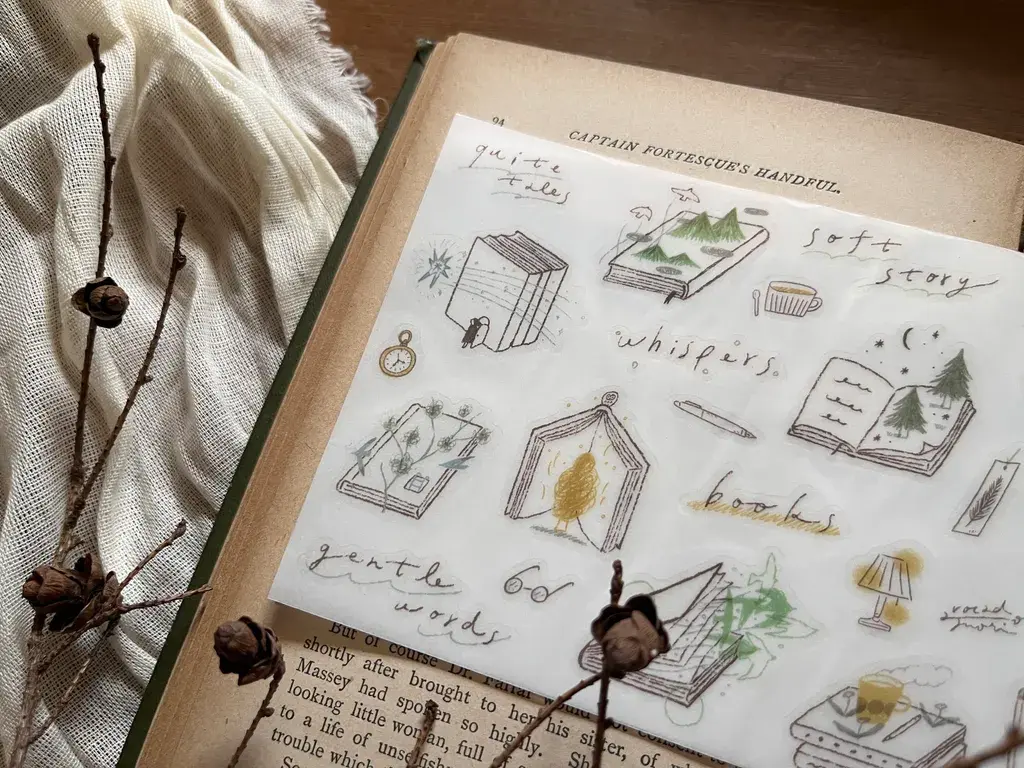 CAPTAIN FORTESCUE'S HANDFUL.
quite
tales
soft
story
whispers
books
gentle
words
But of course Dr. Farrar would not consent to
shortly after brought to her his sister, of
Massey had spoken so highly. She
looking little woman, full of
to a life of
trouble which